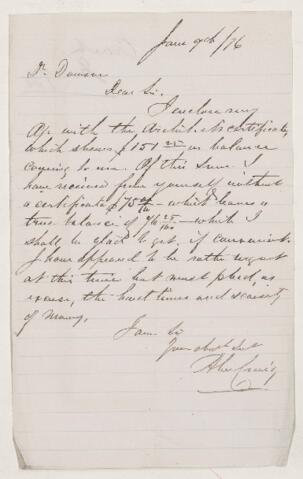 June 9th /76
Dr Dawson
Dear Sir.
I enclose my
A/c with the Architects certificate,
which shews $151 25 as balance
coming to me. Of this sum I
have received from yourself without
a certificate $75 – which leaves a
true balance of 76 25/100 – which I
shall be glad to get, if convenient.
I have appeared to be rather urgent
at this time but must plead, as
excuse, the hard times and scarcity
of money.
I am Sir
Your obdt Servt
Craig